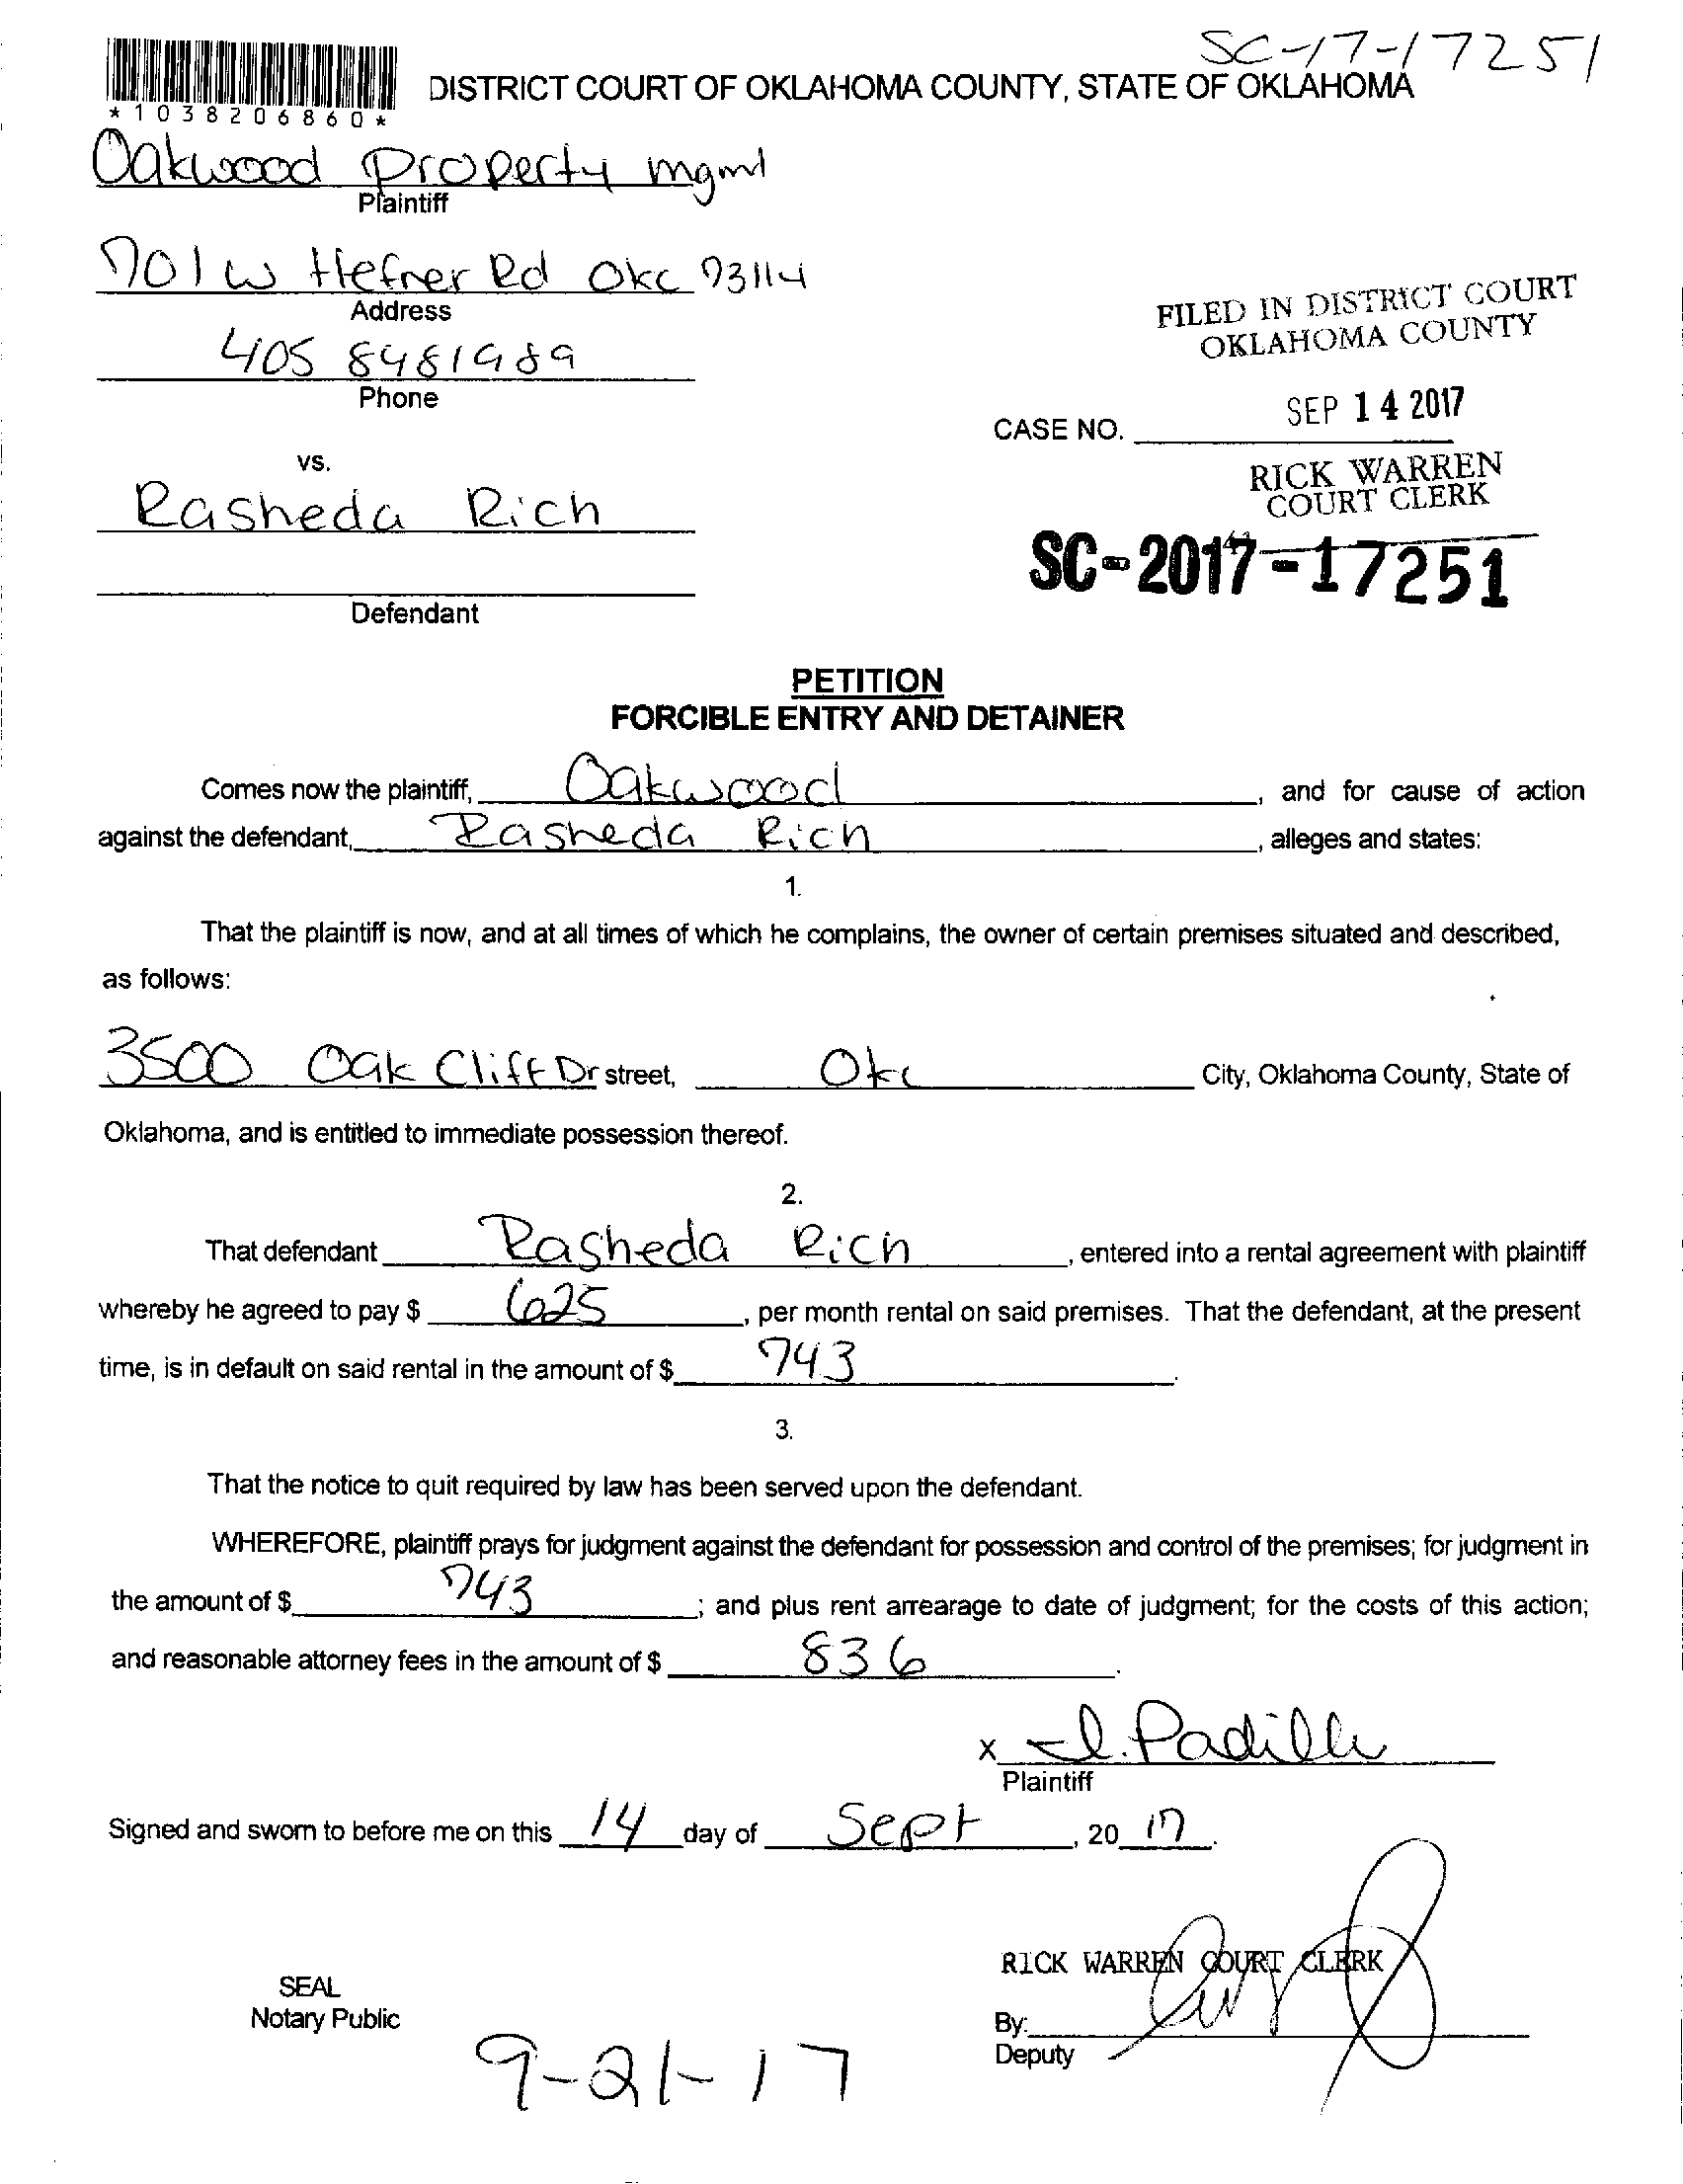 SC-17-17251
DISTRICT COURT OF OKLAHOMA COUNTY, STATE OF OKLAHOMA
*1038206860*
Oakwood Property mgmt
Plaintiff
701 W Hefner Rd Okc 73114
Address
405 8481989
Phone
FILED IN DISTRICT COURT
OKLAHOMA COUNTY
SEP 14 2017
CASE NO.
RICK WARREN
COURT CLERK
vs.
Rasheda Rich
SC-2017-17251
Defendant
PETITION
FORCIBLE ENTRY AND DETAINER
Comes now the plaintiff, Oakwood, and for cause of action
against the defendant, Rasheda Rich, alleges and states:
1.
That the plaintiff is now, and at all times of which he complains, the owner of certain premises situated and described,
as follows:
3500 Oak Cliff Dr street, Okc City, Oklahoma County, State of
Oklahoma, and is entitled to immediate possession thereof.
2.
That defendant Rasheda Rich, entered into a rental agreement with plaintiff
whereby he agreed to pay $ 625, per month rental on said premises. That the defendant, at the present
time, is in default on said rental in the amount of $ 743.
3.
That the notice to quit required by law has been served upon the defendant.
WHEREFORE, plaintiff prays for judgment against the defendant for possession and control of the premises; for judgment in
the amount of $ 743; and plus rent arrearage to date of judgment; for the costs of this action;
and reasonable attorney fees in the amount of $ 836.
x I. Padilla
Plaintiff
Signed and sworn to before me on this 14 day of Sept, 20 17.
RICK WARREN COURT CLERK
SEAL
Notary Public
By:
Deputy
9-21-17